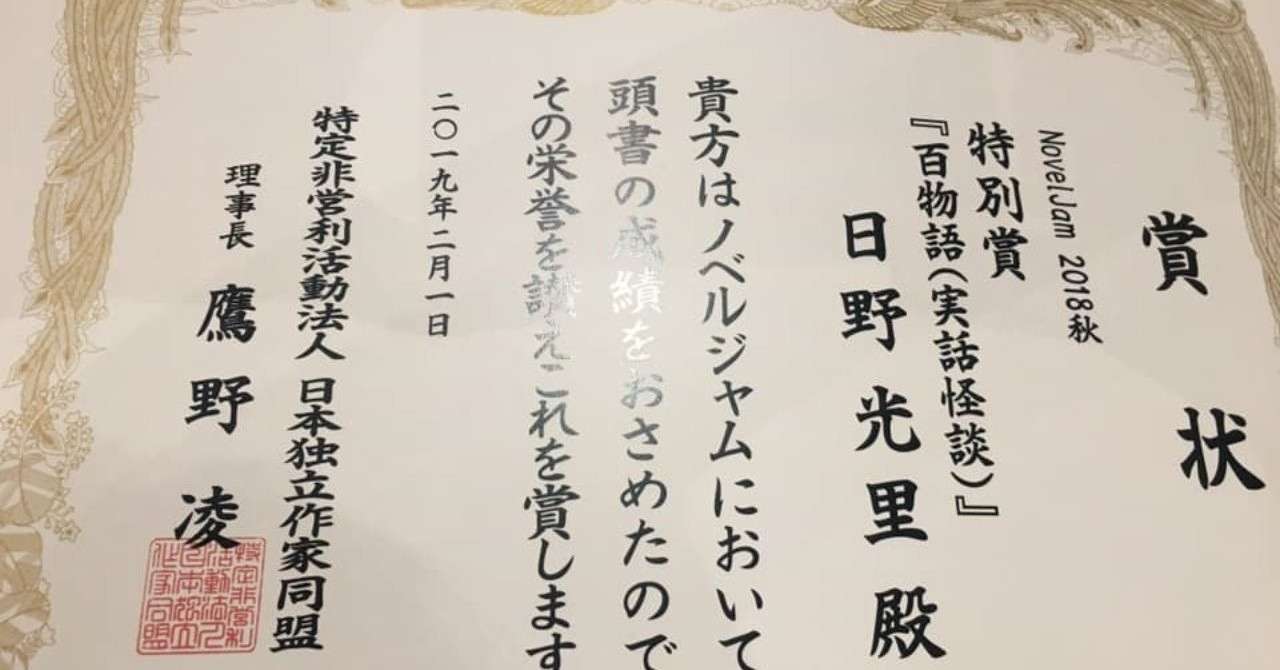 賞状
NovelJam 2018秋
特別賞
『百物語(実話怪談)』
日野光里殿
貴方はノベルジャムにおいて
頭書の成績をおさめたので
その栄誉を讃えこれを賞します
二〇一九年二月一日
特定非営利活動法人 日本独立作家同盟
理事長 鷹野凌
特定非営利
活動法人
日本独立
作家同盟